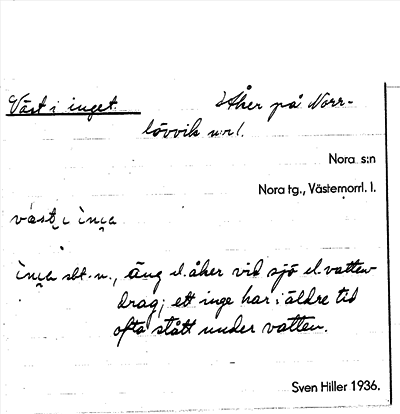 Väst i inget. Åker på Norr-
lövvik nr 1.
Nora s:n
Nora tg., Västernorrl. l.
väst i inga
inga sbt. n., äng el. åker vid sjö el. vatten
drag; ett inge har i äldre tid
ofta stått under vatten.
Sven Hiller 1936.